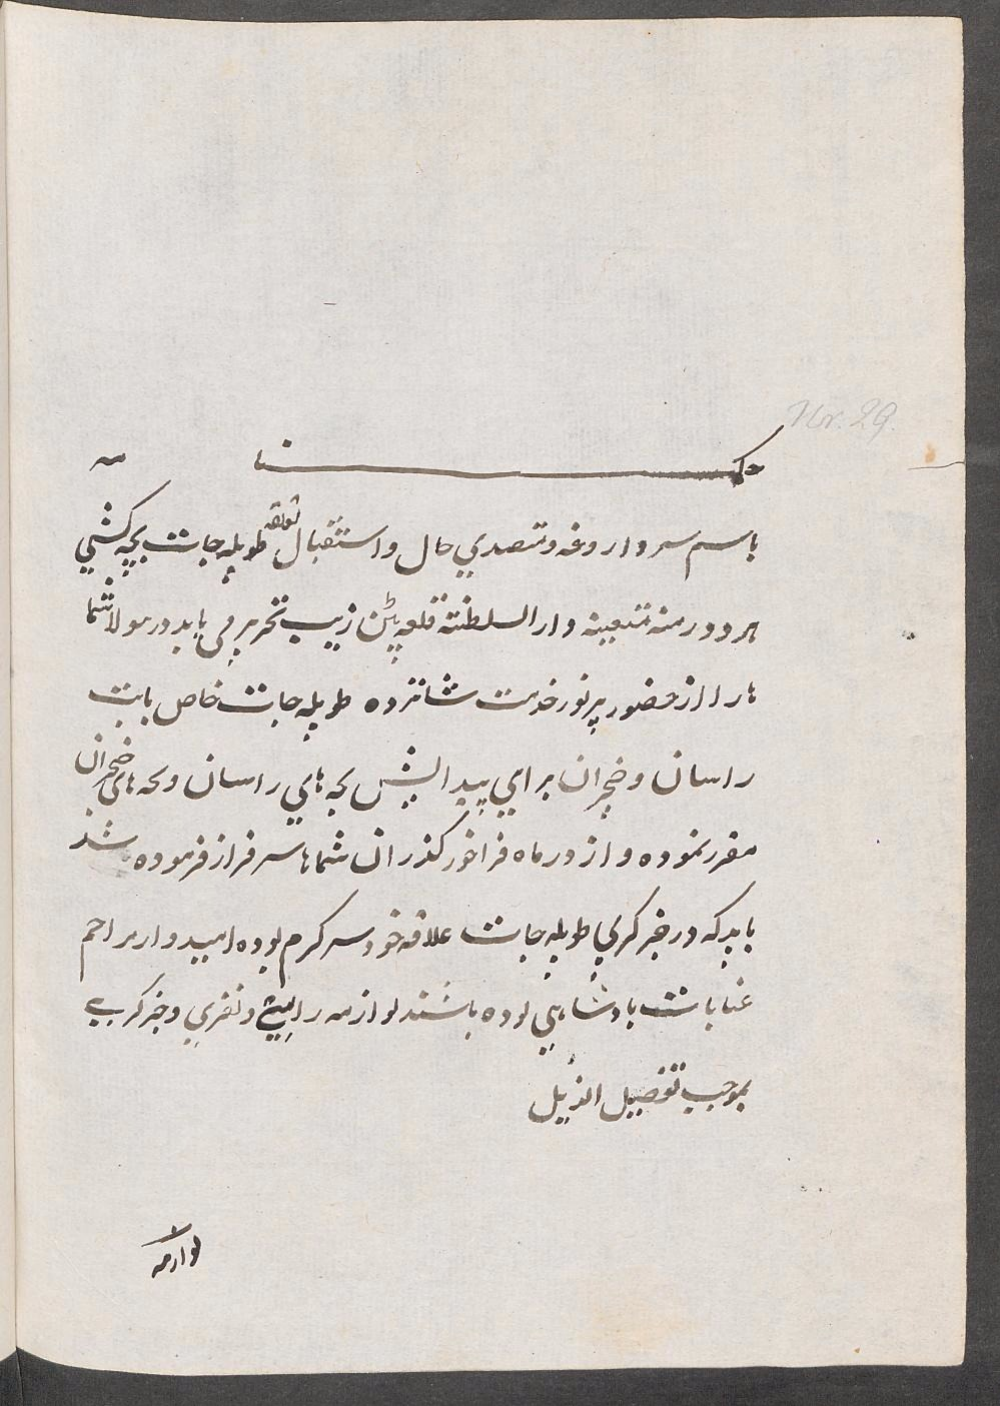 Nr. 29.
حکمنامه
باسم سر داروغه و متصدي حال و استقبال تعلقه طویله جات بچه کشي
هر دو رمنه متعینه دار السلطنته قلعه پٹن زیب تحریر مي یابد درینولا شما
ها را از حضور پرنور خدمت شانزده طویله جات خاص بابت
راسان و خچران براي پیدایش بچه هاي راسان و بچه هاي خچران
مقرر نموده و از درماه فراخور گذران شماها سرفراز فرموده شد
باید که در خبرگري طویله جات علاقه خود سرگرم بوده امیدوار مراحم
عنایات بادشاهي بوده باشند لوازمه راینج و نفري و خبرگري
بموجب تفصیل الذیل
لوازمه